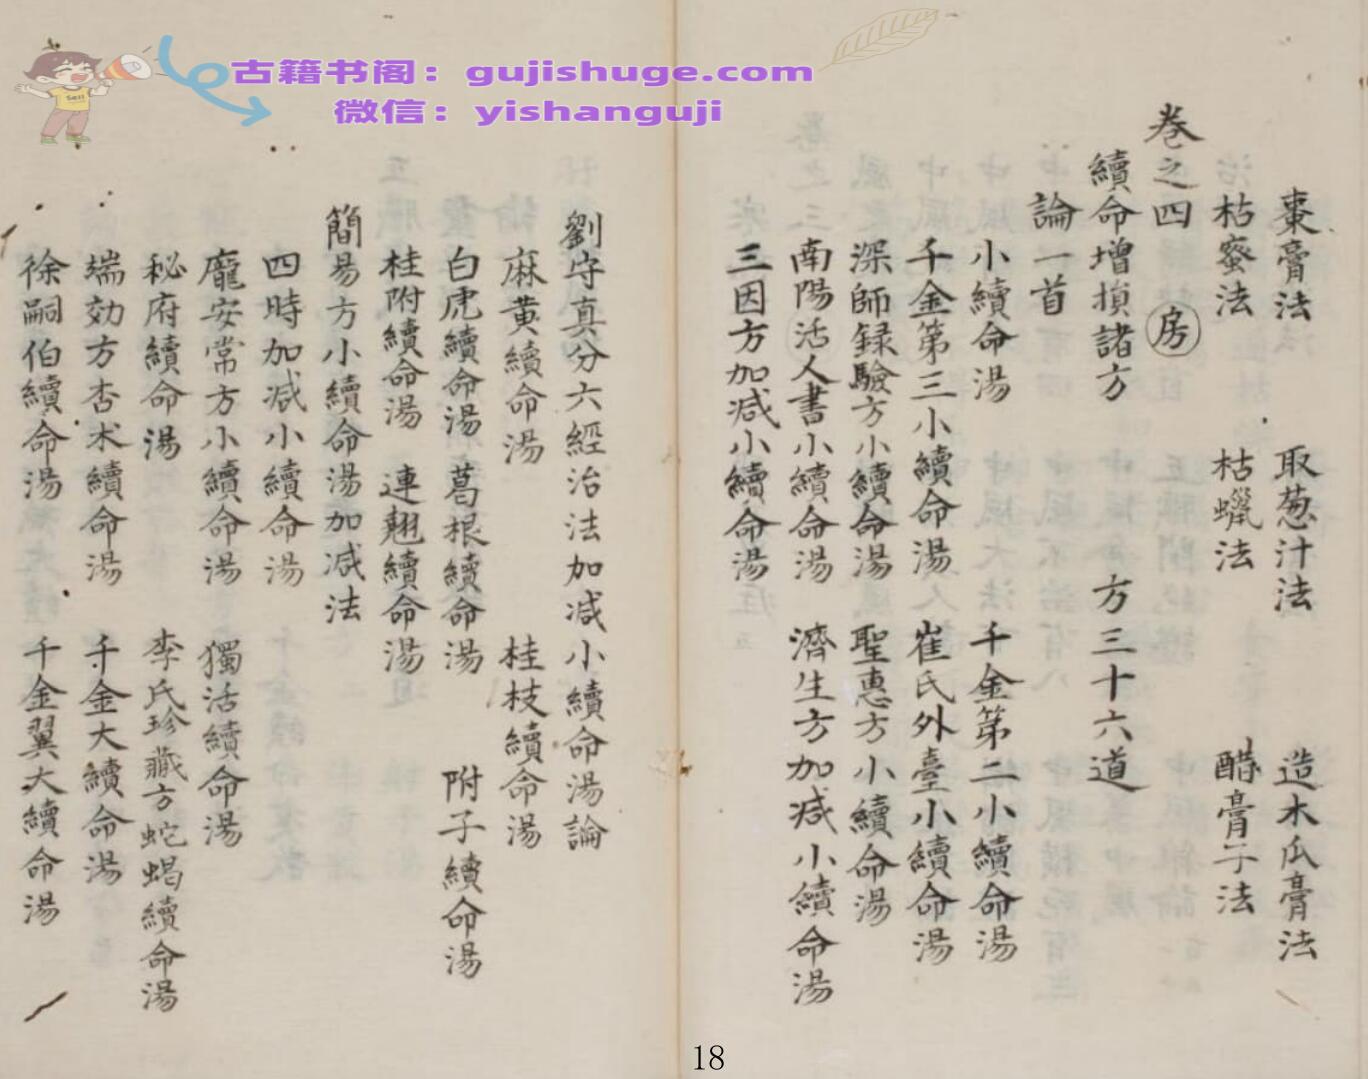 古籍书阁：gujishuge.com
微信：yishanguji
Sell
棗膏法 取葱汁法 造木瓜膏法
枯蜜法 枯蠟法 醋膏子法
卷之四 房
續命增損諸方 方三十六道
論一首
小續命湯 千金第二小續命湯
千金第三小續命湯 崔氏外臺小續命湯
深師録驗方小續命湯 聖惠方小續命湯
南陽活人書小續命湯 濟生方加减小續命湯
三因方加减小續命湯
劉守真分六經治法加减小續命湯論
麻黄續命湯 桂枝續命湯
白虎續命湯 葛根續命湯 附子續命湯
桂附續命湯 連翹續命湯
簡易方小續命湯加减法
四時加减小續命湯
龐安常方小續命湯 獨活續命湯
秘府續命湯 李氏珍藏方蛇蝎續命湯
端効方杏术續命湯 千金大續命湯
徐嗣伯續命湯 千金翼大續命湯
18